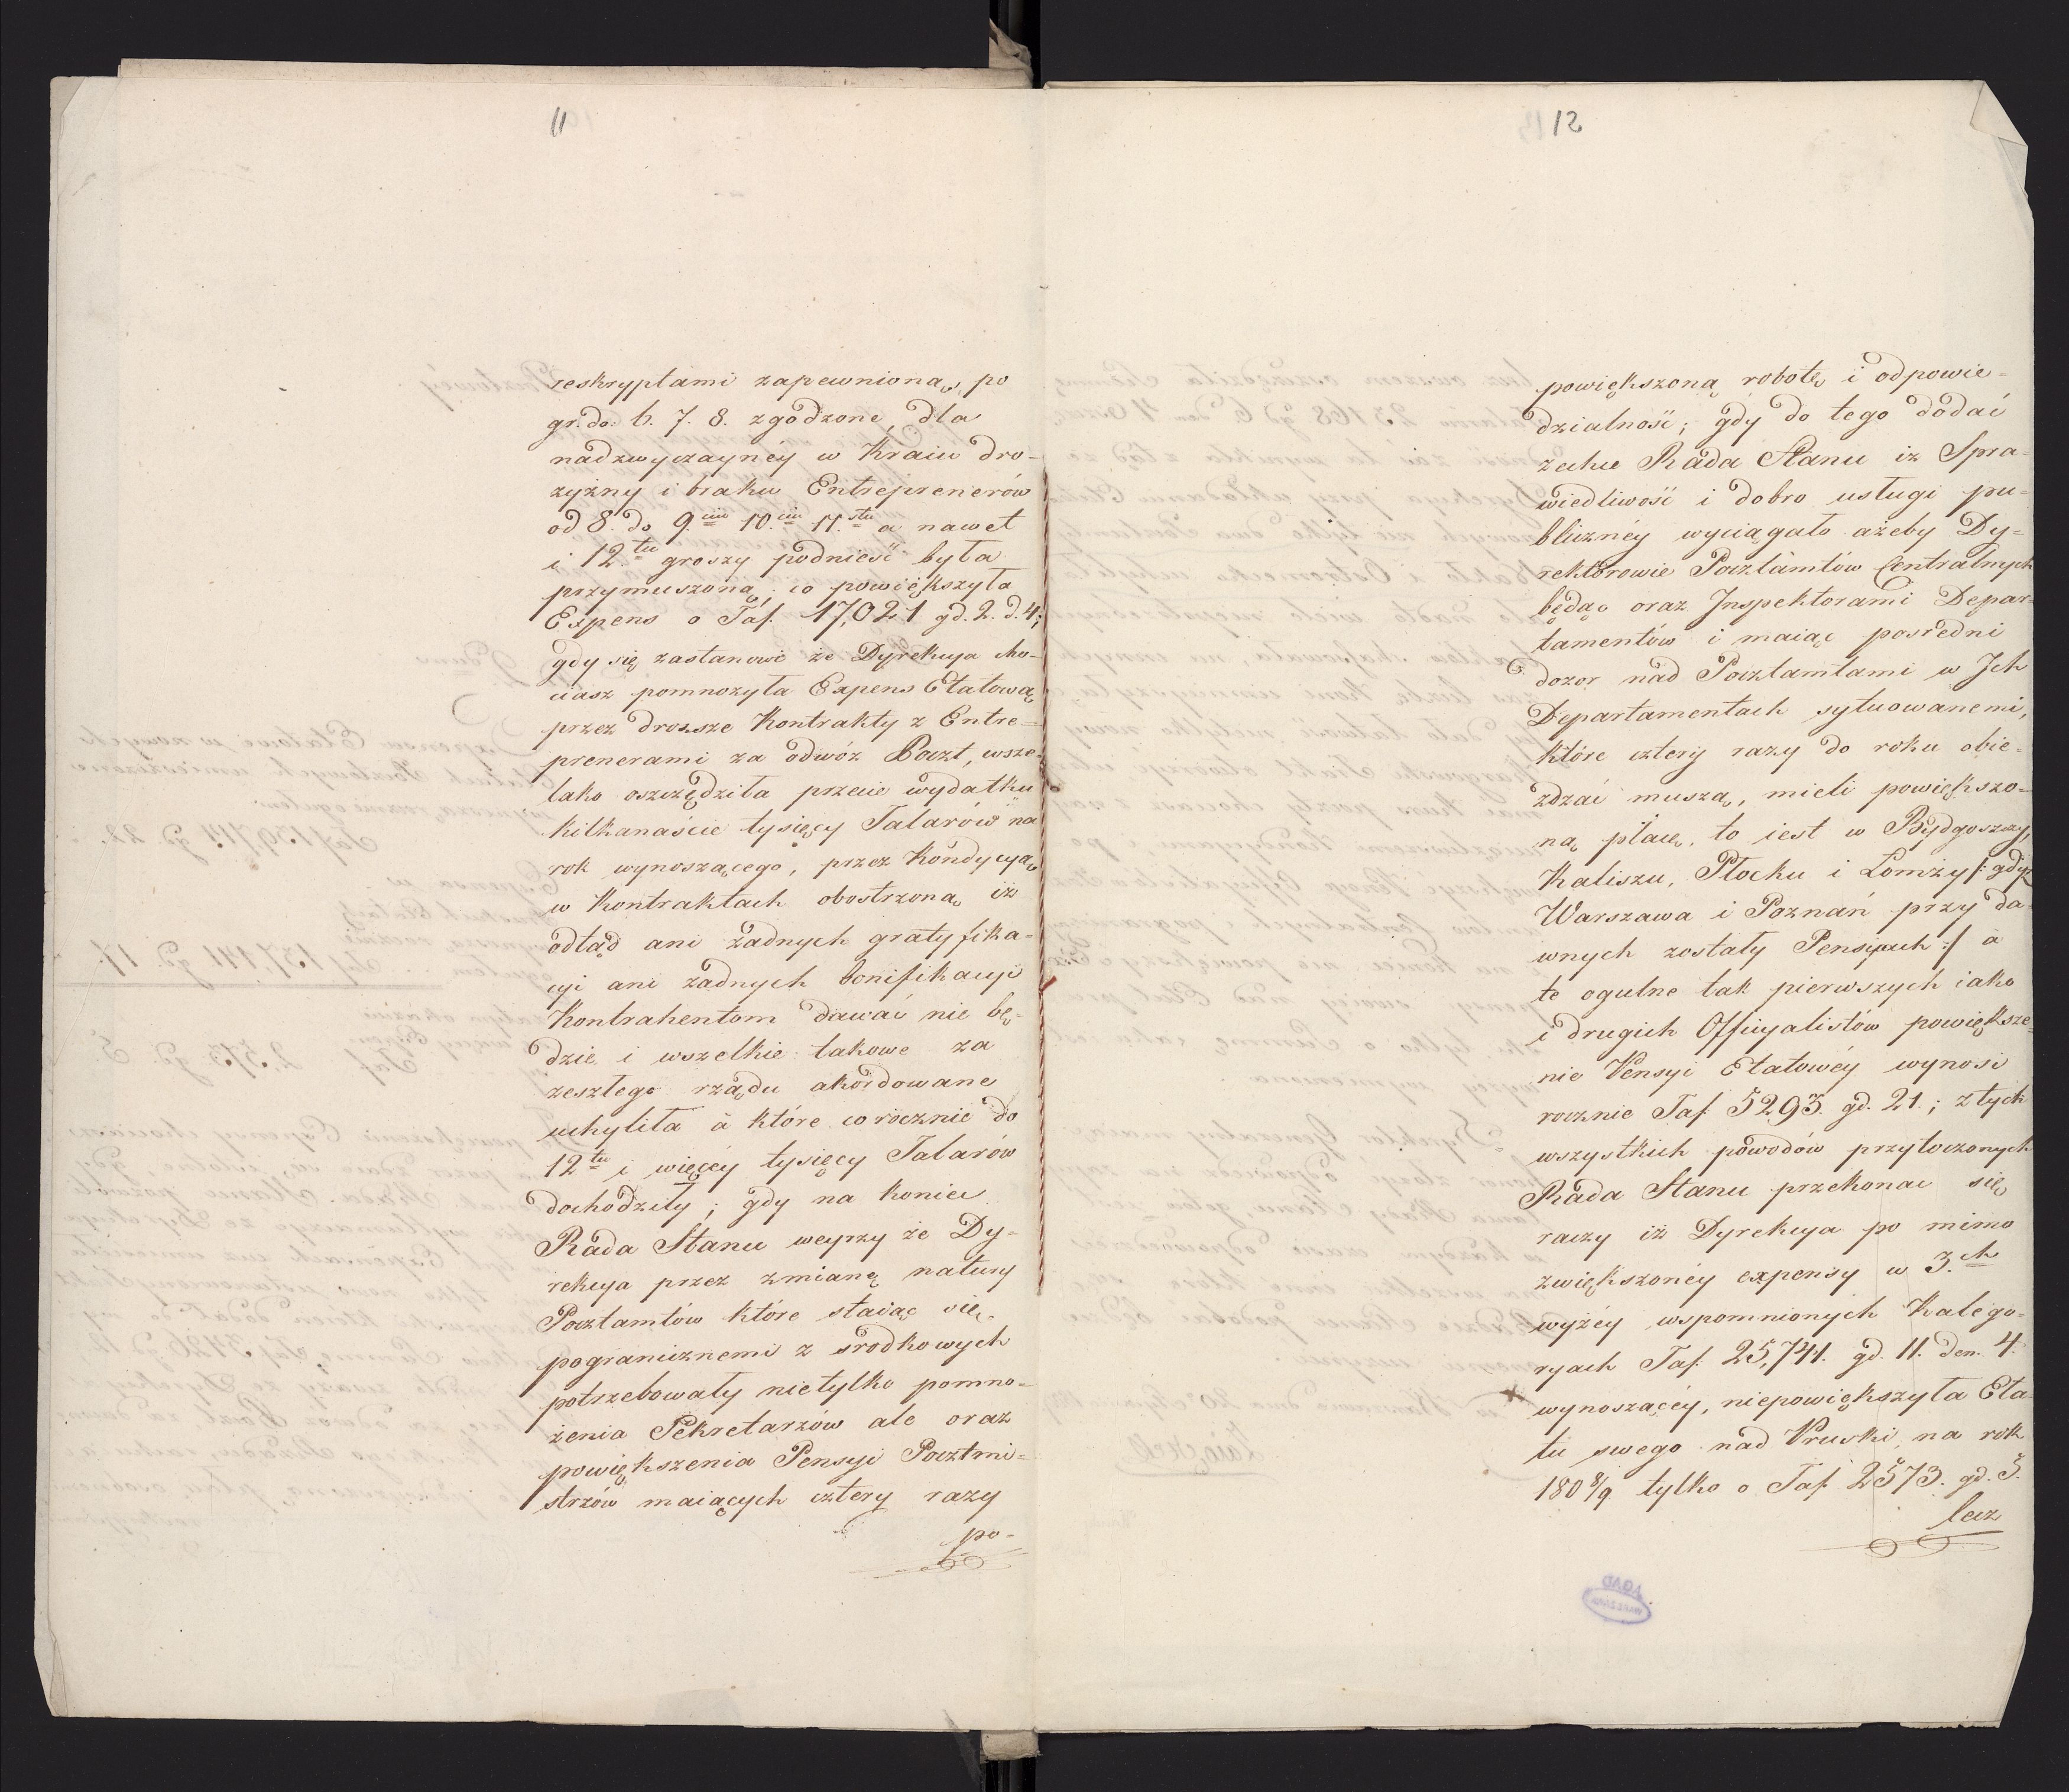 11
reskryptami zapewnioną, po
gr. do. 6. 7. 8. zgodzone, dla
nadzwyczaynéy w Kraiu dro-
zyżny i braku Entreprenerów
od 8. do 9.ciu 10.ciu 11.stu a nawet
i 12.tu groszy podnieść była
przymuszoną; co powiększyła
Expens o Taf. 17,021 gd. 2. d. 4;
gdy się zastanowi że Dyrekcya cho-
ciasz pomnozyła Expens Etatową
przez drozsze Kontrakty z Entre-
prenerami za odwóz Poczt, wsze-
lako oszczędziła przecie wydatku
kilkanaście tysięcy Talarów na
rok wynoszącego, przez Kondycyą
w Kontraktach obostrzoną iż
odtąd ani żadnych gratyfika-
cyi ani żadnych bonifikacyi
Kontrahentom dawać nie bę-
dzie i wszelkie takowe za
zeszłego rządu akordowane
uchyliła a które corocznie do
12tu i więcéy tysięcy Talarów
dochodziły; gdy na koniec
Rada Stanu weyrzy że Dy-
rekcya przez zmianę natury
Pocztamtów które staiąc się
pogranicznemi z srodkowych
potrzebowały nietylko pomno-
żenia Sekretarzów ale oraz
powiększenia Pensyi Pocztmi-
strzów maiących cztery razy
po-
12
powiększoną robotę i odpowie-
dzialność; gdy do tego dodać
zechce Rada Stanu iż Spra-
wiedliwość i dobro usługi pu-
blicznéy wyciągało ażeby Dy-
rektorowie Pocztamtów Centralnych
będąc oraz Inspektorami Depar-
tamentów i maiąc posredni
dozor nad Pocztamtami w Ich
Departamentach sytuowanemi,
które cztery razy do roku obie-
zdzać muszą, mieli powiększo-
ną płacę, to iest w Bydgoszczy,
Kaliszu, Płocku i Lomży /: gdyż
Warszawa i Poznań przy da-
wnych zostały Pensyach :/ a
te ogulne tak pierwszych iako
i drugich Officyalistów powiększe-
nie Pensyi Etatowéy wynosi
rocznie Taf. 5293. gd. 21.; z tych
wszystkich powodów przytoczonych
Rada Stanu przekonać się
raczy iż Dyrekcya po mimo
zwiększonéy expensy w 3.ch
wyżéy wspomnionych Katego-
ryach Taf. 25,741. gd. 11. den. 4.
wynoszącéy, niepowiększyła Eta-
tu swego nad Pruski, na rok
180 8/9 tylko o Taf. 2573. gd. 5.
lecz
AGAD